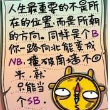 人生最重要的不是所
在的位置,而是所朝
的方向。同样是个B
你一路向北能变成
NB,撞破南墙不回
来,就
只能当
个SB。